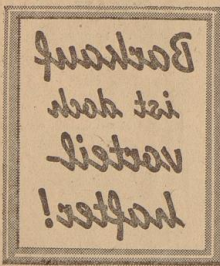 Barkauf
ist doch
vorteil-
hafter!